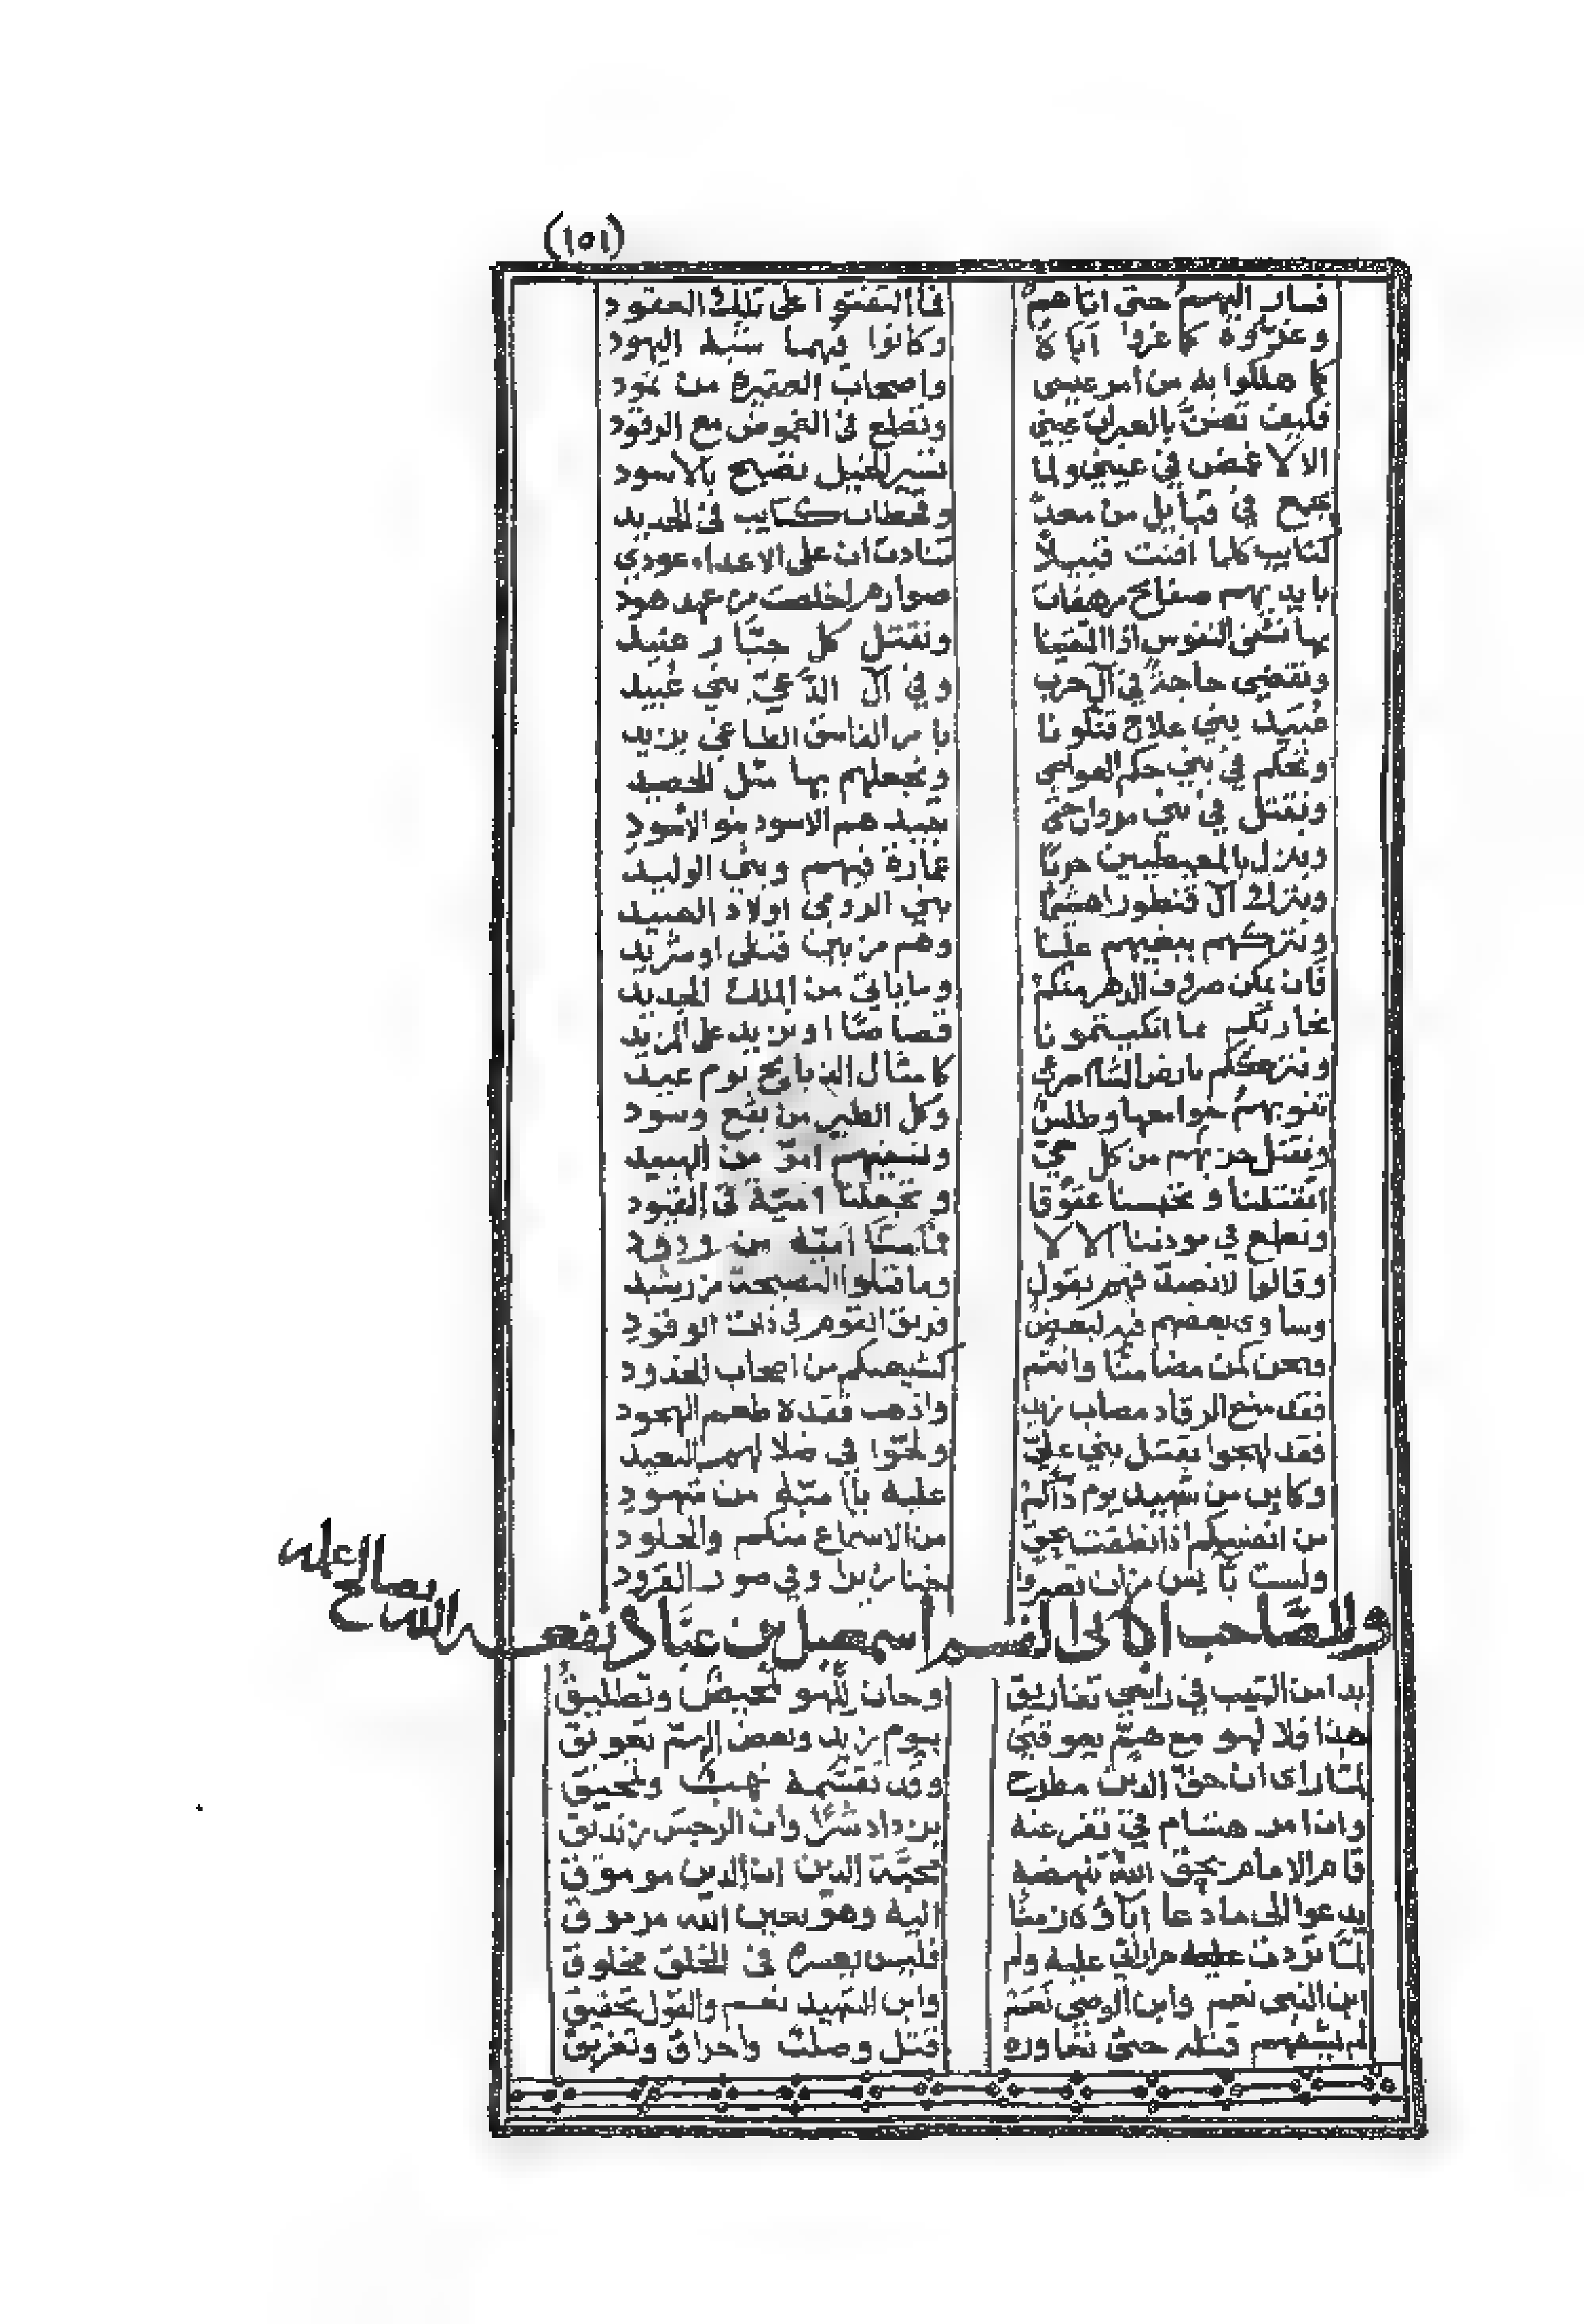 (١٥١)
فسار اليهم حتى اتاهم فما التفتوا على تلك العقود
وغروه كما غروا اباه وكانوا فيهما شبه اليهود
كما ضلوا به من امر عيسى واصحاب العقيرة من ثمود
فكيف تضن بالعبرات عيني وتطمع في الغموض مع الرقود
الا لا غمض في عيني ولما تسر الخيل تضبح بالاسود
في قبايل من معد وقحطان كتايب في الحديد
كتايب كلما افنت قبيلا تنادت ان على الاعداء عودي
بايديهم صفائح مرهفات صوارم اخلصت من عهد هود
بها نشفي النفوس اذا التقينا ونقتل كل جبار عنيد
ونقضي حاجة في آل حرب وفي آل الدعي بني عبيد
عبيد بني علاج قتلونا بامر الفاسق الطاغي يزيد
ونحكم في بني حكم العواصي ونجعلهم بها مثل الحصيد
ونقتل في بني مروان حتى نبيدهم الاسود بنو الاسود
وننزل بالمعيطيين حربا غارة فيهم وبني الوليد
ونترك آل قنطورا هشيما بني الرومي اولاد العبيد
ونتركهم ببغيهم علينا وهم من بين قتلى او شريد
فان يمكن صروف الدهر منكم وما ياتي من الملك الجديد
نجازيكم ما ابكيتمونا قصاصا او نزيد على المزيد
ونترككم بارض الشام صرعى كامثال الذبايح يوم عيد
تنوبهم خوامعها وطلس وكل الطير من بقع وسود
من كل حي امر من
اتقتلنا وتحبسنا عتوا وتجعلنا امية في القيود
وتطمع في مودتنا الا لا فما منا امية من ودود
وقالوا لا نصدقهم بقول وما قبلوا النصيحة من رشيد
وساوى بعضهم فيه لبعض فريق القوم في ذات الوقود
ونحن كمن مضى منا وانتم كشيعتكم من اصحاب الخدود
فقد منع الرقاد مصاب زيد واذهب فقده طعم الهجود
فقد لهجوا بقتل بني علي ولجوا في ضلالهم البعيد
وكاين من شهيد يوم ذاكم عليه يا امية من شهود
من انفسكم اذا نطقت بحق من الاسماع منكم والجلود
ولست بآيس من ان تصيروا خنازيرا وفي صور القرود
وللصاحب الاجل ابي القسم اسمعيل بن عباد نفعه الله بصالح عمله
بدا من الشيب في راسي تفاريق وحان للهو تمحيض وتطليق
هذا فلا لهو مع هم يعوقني بيوم زيد وبعض الهم تعويق
لما راى ان حق الدين مطرح وقد تقسمه نهب وتمحيق
وان امر هشام في تفرعنه يزداد شرا وان الرجس زنديق
قام الامام بحق الله تنهضه محبة الدين ان الدين موموق
يدعو الى ما دعا آباؤه زمنا اليه وهو بعين الله مرموق
لما تردى فليس يعسره في الخلق مخلوق
ابن النبي نعم وابن الوصي نعم وابن الشهيد نعم والقول تحقيق
لم يشفهم قتله حتى تعاوره قتل وصلب واحراق وتغريق